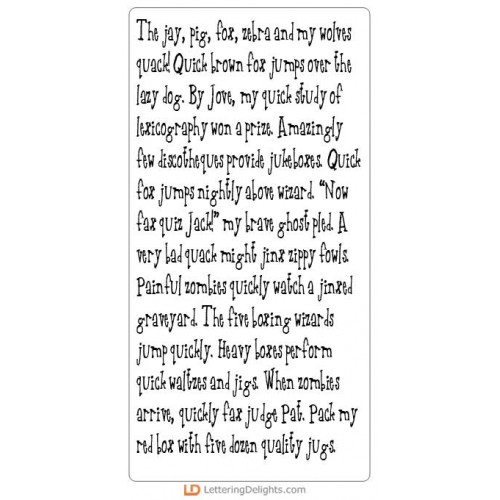 The jay, pig, fox, zebra and my wolves
quack! Quick brown fox jumps over the
lazy dog. By Jove, my quick study of
lexicography won a prize. Amazingly
few discotheques provide jukeboxes. Quick
fox jumps nightly above wizard. “Now
fax quiz Jack!” my brave ghost pled. A
very bad quack might jinx zippy fowls.
Painful zombies quickly watch a jinxed
graveyard. The five boxing wizards
jump quickly. Heavy boxes perform
quick waltzes and jigs. When zombies
arrive, quickly fax judge Pat. Pack my
red box with five dozen quality jugs.
LD LetteringDelights.com